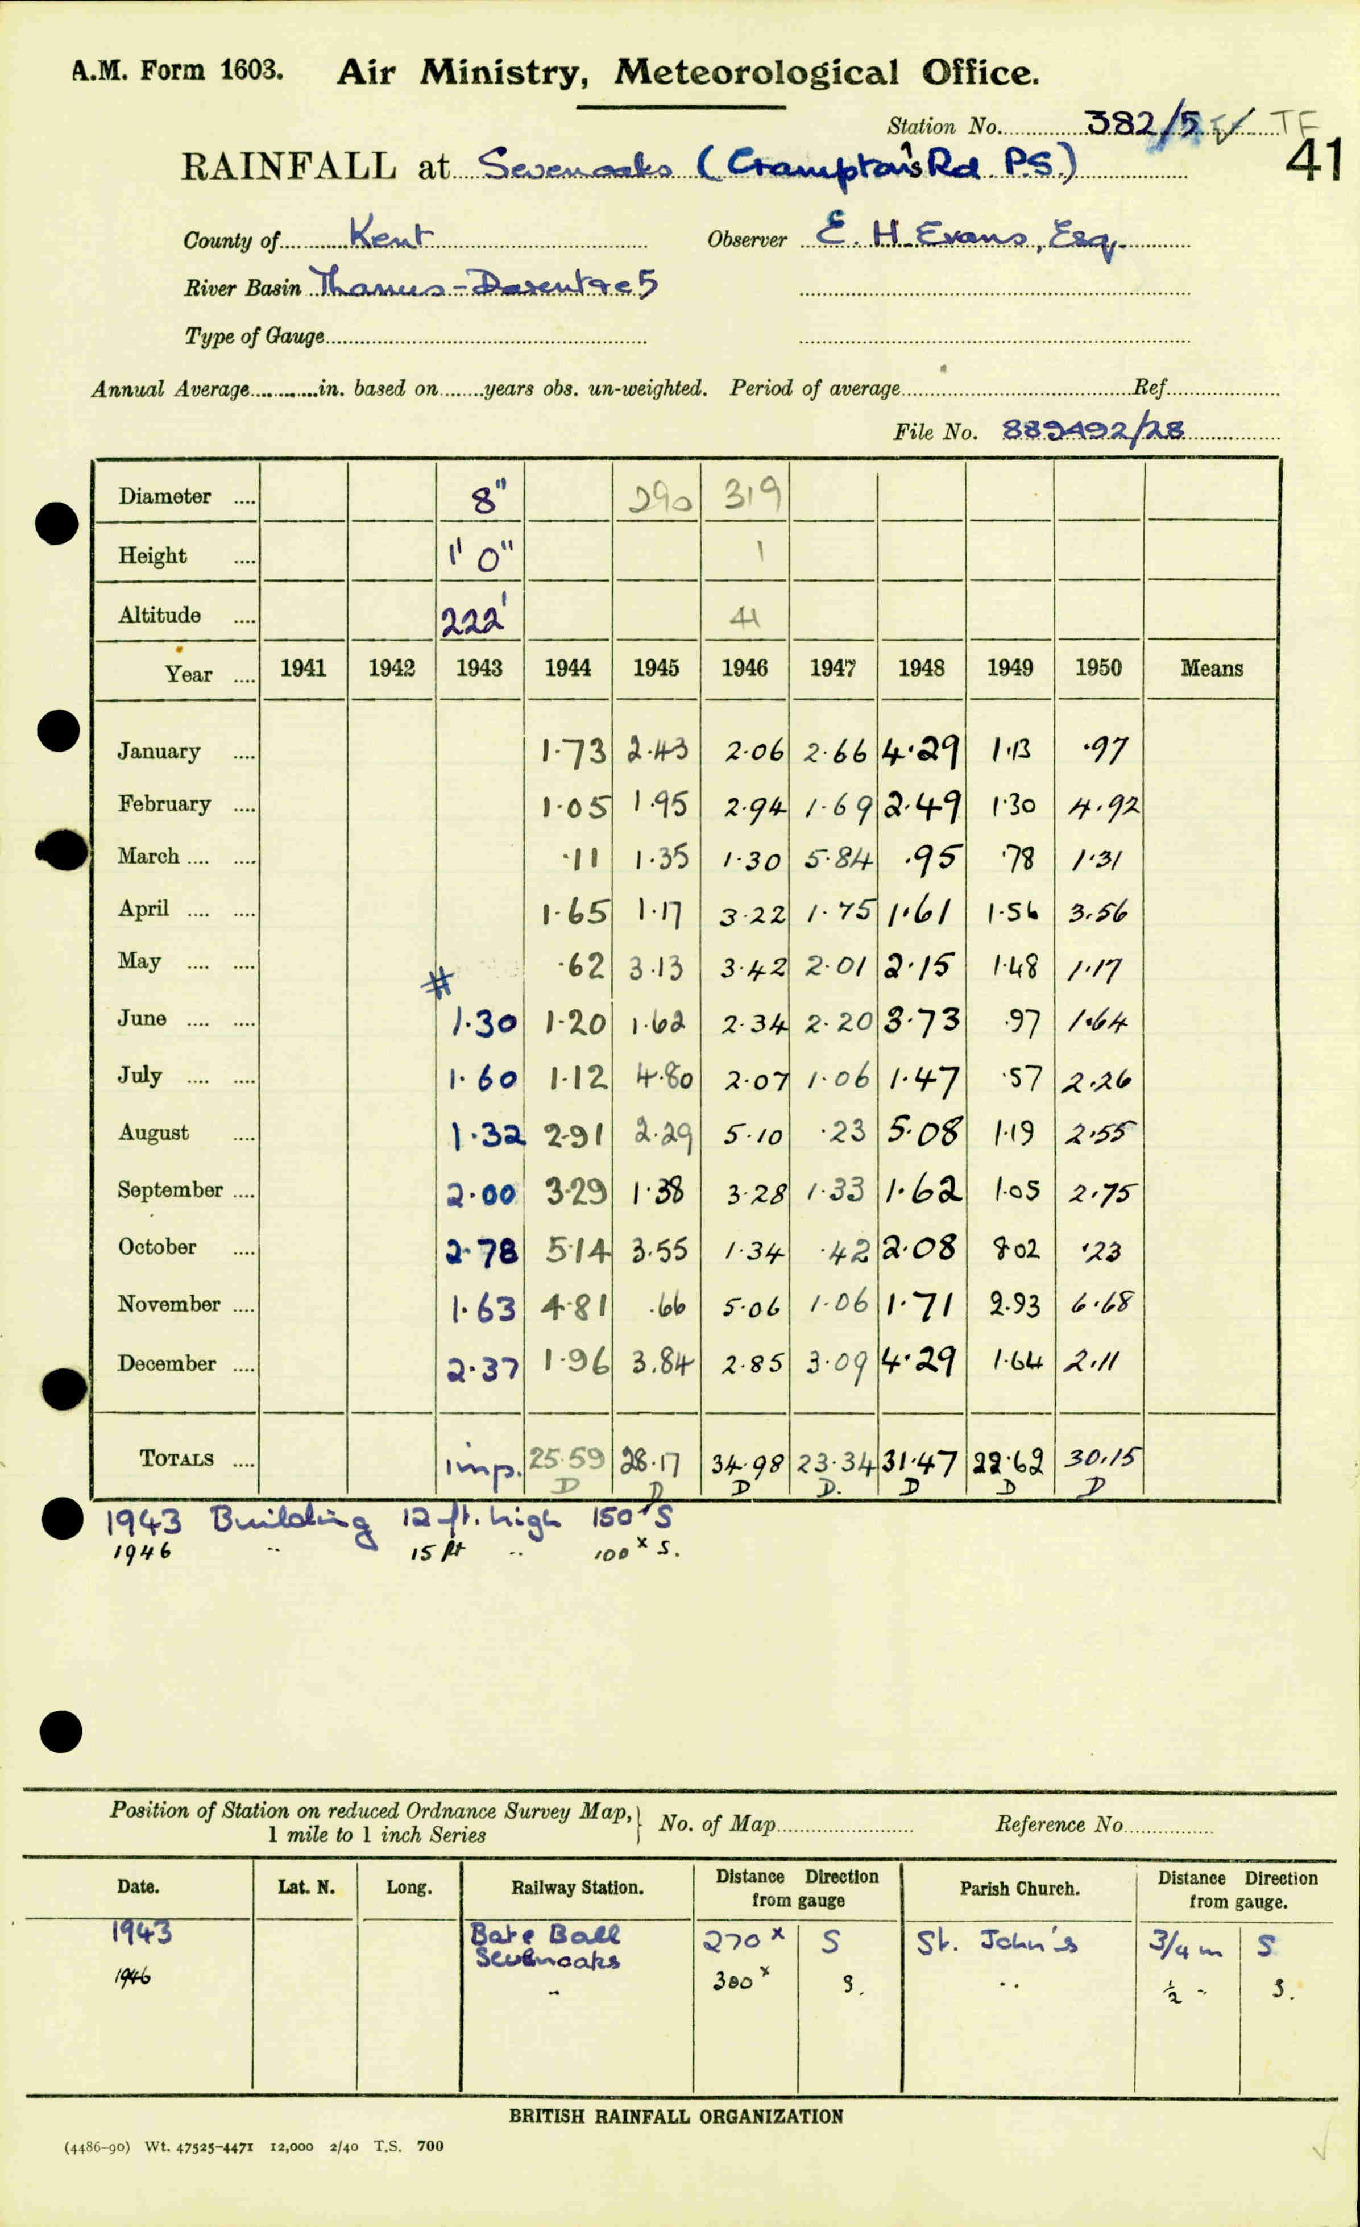 A.M. Form 1603. Air Ministry, Meteorological Office.
Station No. 382/5 ✓ TF
41
RAINFALL at Sevenoaks (Crampton's Rd P.S.)
County of Kent Observer E. H. Evans, Esq.
River Basin Thames - Darent
Type of Gauge
Annual Average in. based on years obs. un-weighted. Period of average Ref.
File No. 889492/28
Diameter 8" 290 319
Height 1' 0" 1
Altitude 222' 41
Year 1941 1942 1943 1944 1945 1946 1947 1948 1949 1950 Means
January 1.73 2.43 2.06 2.66 4.29 1.13 .97
February 1.05 1.95 2.94 1.69 2.49 1.30 4.92
March .11 1.35 1.30 5.84 .95 .78 1.31
April 1.65 1.17 3.22 1.75 1.61 1.56 3.56
May # .62 3.13 3.42 2.01 2.15 1.48 1.17
June 1.30 1.20 1.62 2.34 2.20 3.73 .97 1.64
July 1.60 1.12 4.80 2.07 1.06 1.47 .57 2.26
August 1.32 2.91 2.29 5.10 .23 5.08 1.19 2.55
September 2.00 3.29 1.38 3.28 1.33 1.62 1.05 2.75
October 2.78 5.14 3.55 1.34 .42 2.08 8.02 .23
November 1.63 4.81 .66 5.06 1.06 1.71 2.93 6.68
December 2.37 1.96 3.84 2.85 3.09 4.29 1.64 2.11
TOTALS imp. 25.59 28.17 34.98 23.34 31.47 22.62 30.15
D D D D. D D D
1943 Building 12 ft. high 150x S
1946 .. 15 ft .. 100x S.
Position of Station on reduced Ordnance Survey Map, No. of Map Reference No.
1 mile to 1 inch Series
Date. Lat. N. Long. Railway Station. Distance Direction from gauge Parish Church. Distance Direction from gauge.
1943 Bat & Ball 270x S St. John's 3/4 m S
Sevenoaks
1946 .. 300x S. .. ½ .. S.
BRITISH RAINFALL ORGANIZATION
(4486-90) Wt. 47525-4471 12,000 2/40 T.S. 700